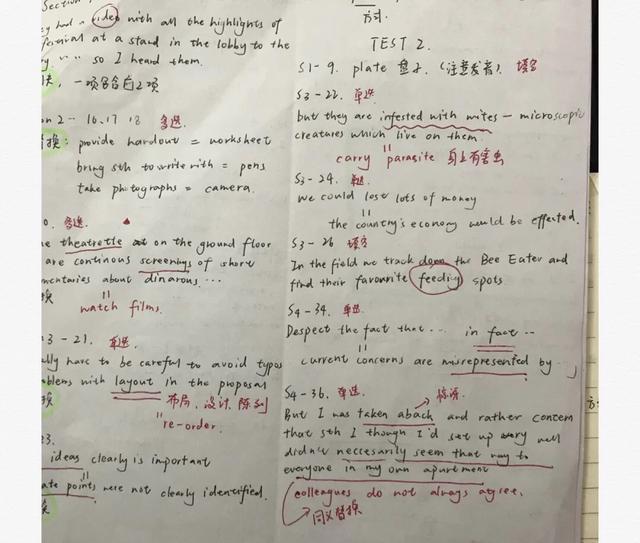 Section
had a video with all the highlights of
festival at a stand in the lobby to the
so I heard them.
一项多含自2项
16.17 18 多选.
换: provide handout = worksheet
bring sth to write with = pens
take photographs = camera.
0. 多选.
theatrette on the ground floor
are continous screenings of short
mentaries about dinarous...
换 watch films.
3-21. 单选.
ally have to be careful to avoid typos
oblems with layout in the proposal
布局、设计、陈列
换 re-order.
23.
ideas clearly is important
ate points were not clearly identified.
换
方式.
TEST 2.
S1-9. plate 盘子. (注意发音). 填空
S3-22. 单选.
but they are infested with mites - microscopic
creatures which live on them.
carry parasite 身上有害虫
S3-24. 单选.
we could lost lots of money
the country's economy would be effected.
S3-26 填空
In the field we track down the Bee Eater and
find their favourite feediy spots
S4-34. 单选.
Despect the fact that... in fact...
current concerns are misrepresented by...
S4-36. 单选. 惊讶.
But I was taken aback and rather concern
that sth I though I'd set up very well
didn't neccesarily seem that way to
everyone in my own apurtment
colleagues do not always agree.
同义替换